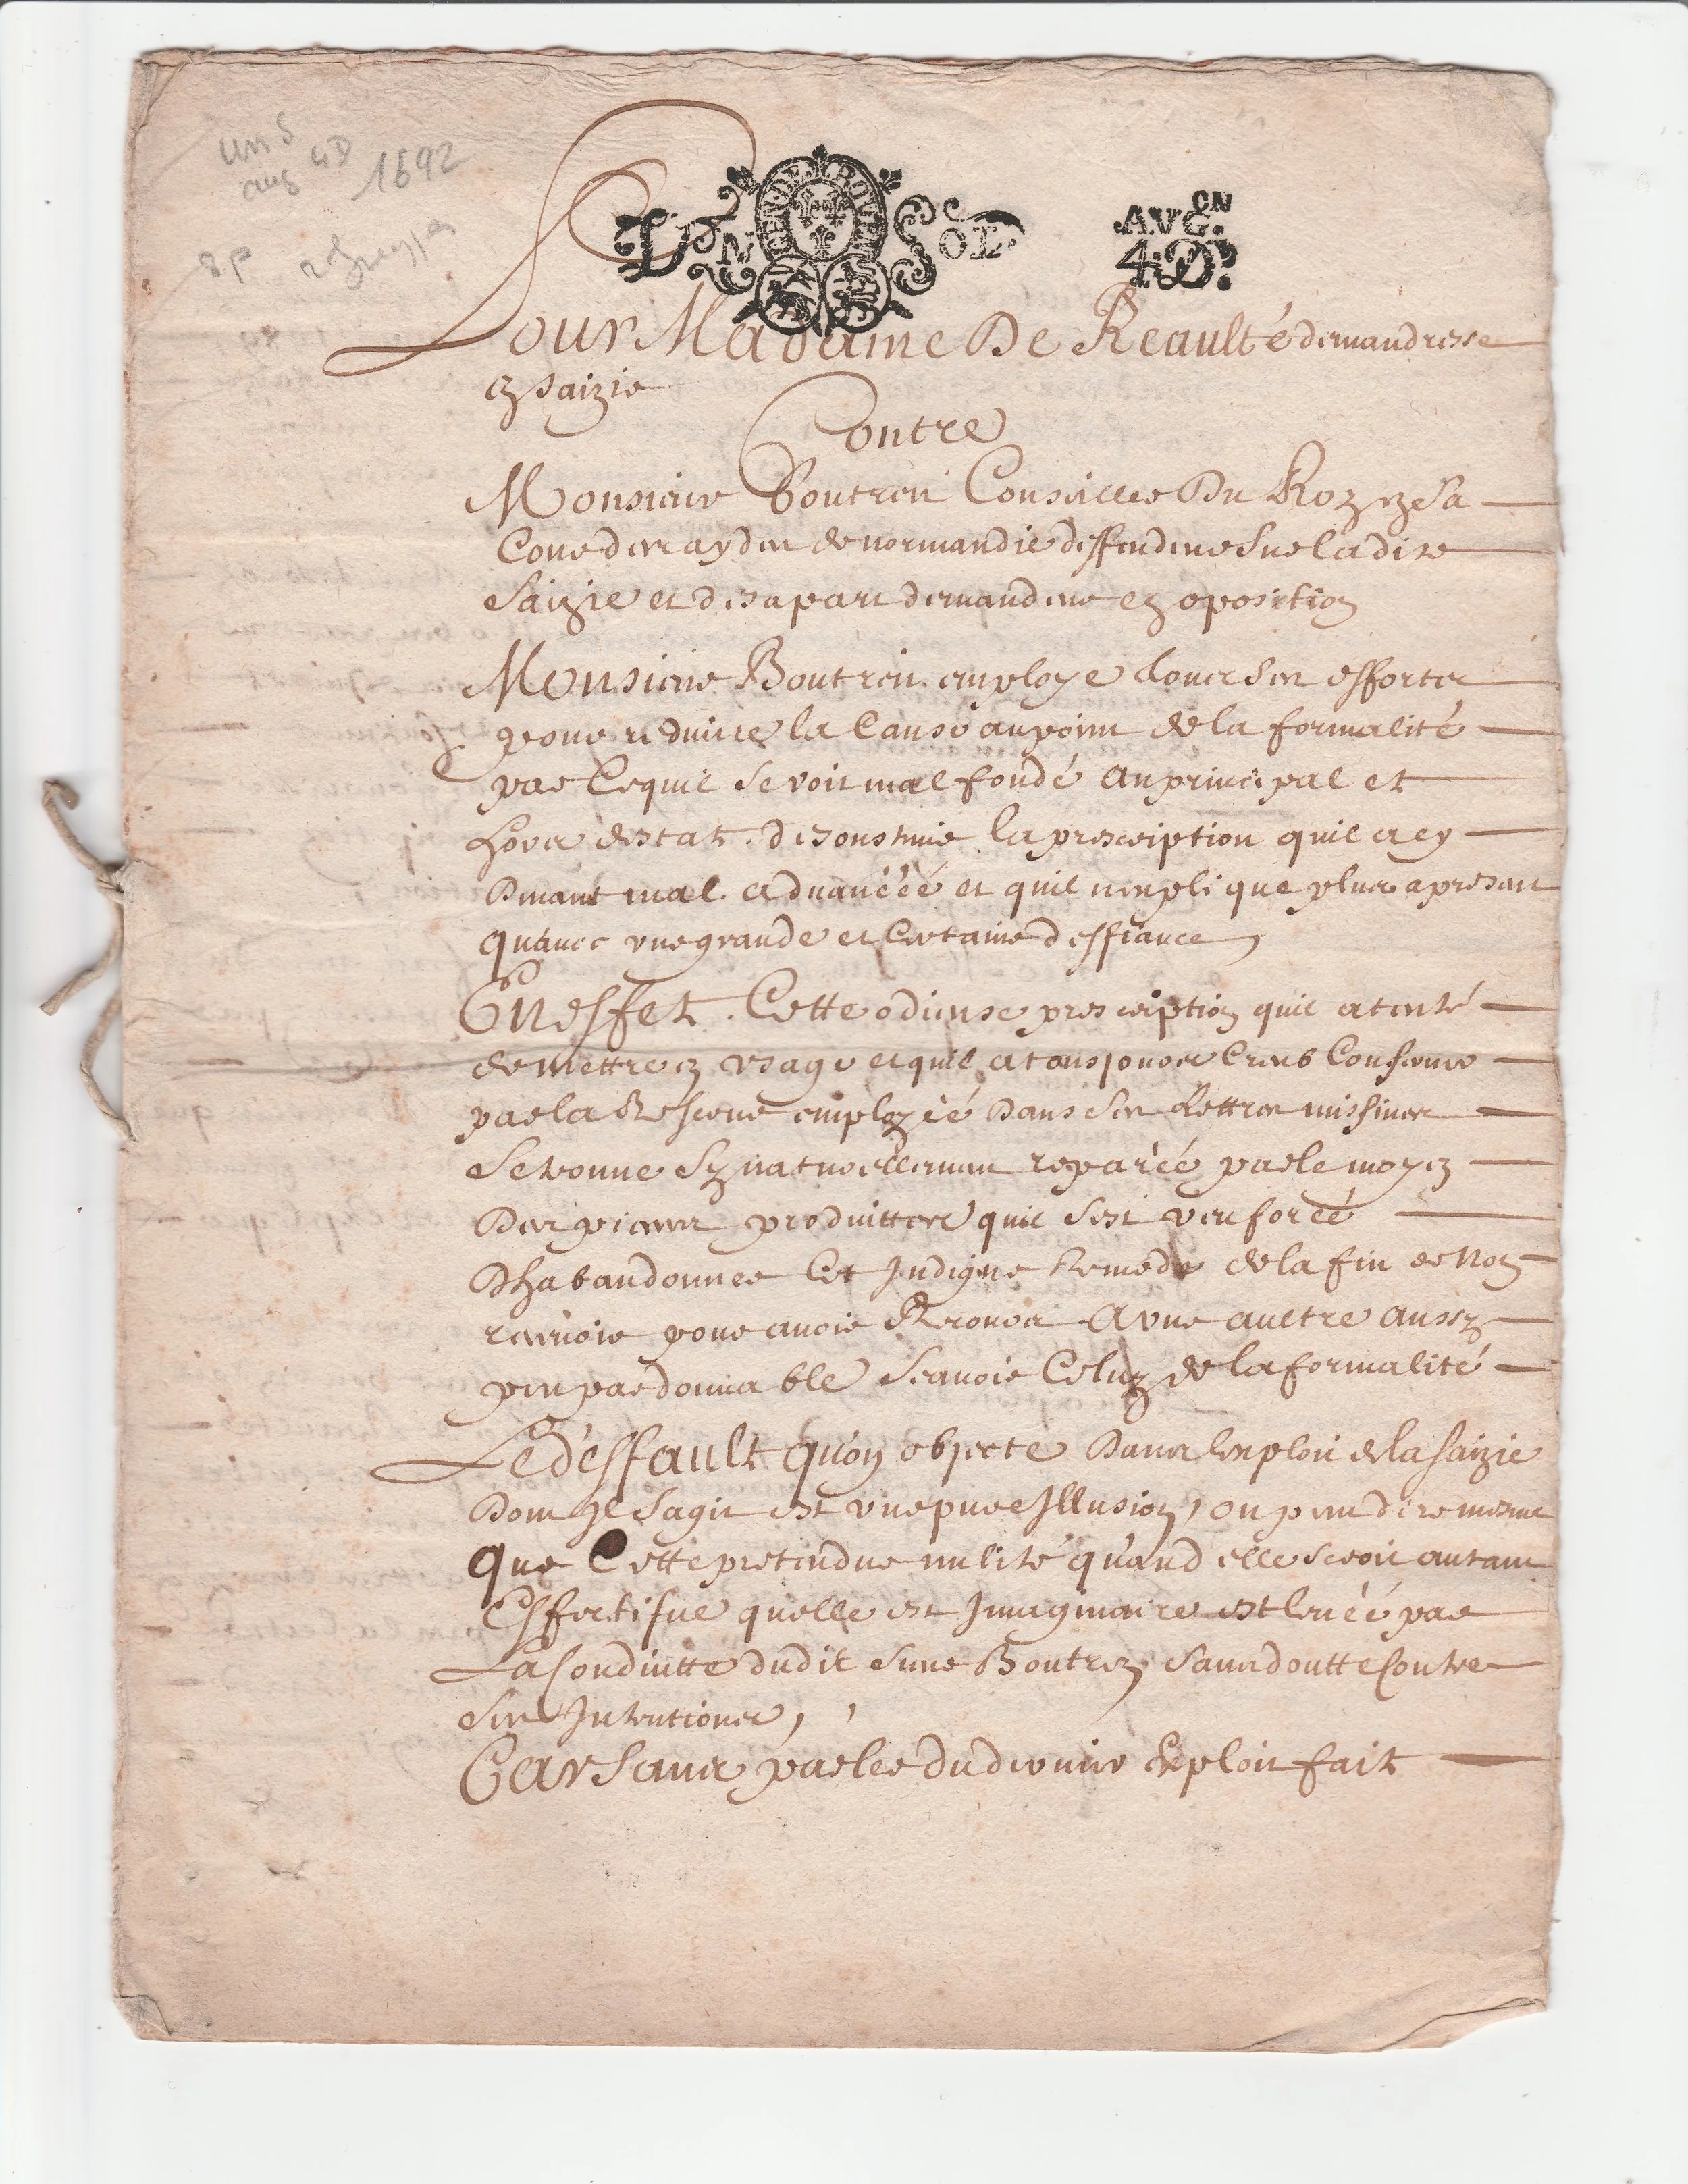 un S
aug 4D 1692
8 p
VN SOL
GEN. DE ROVEN
AVG.CN
4.D.
Pour Madame De Reaulté demandresse
en saizie
Contre
Monsieur Boutren Conseiller Du Roy en Sa
Cour des aydes de normandie deffendeur sur ladite
Saizie et de sa part demandeur en oposition
Monsieur Boutren employe tous ses efforts
pour reduire la Cause au point de la formalité
par Cequil se voit mal fondé au principal et
hors destat de soustenir la prescription quil a cy
devant mal aduancéé et quil nexplique plus apresent
quauec vne grande et Certaine deffiance
En effet Cette odieuse prescription quil a tenté
de mettre en vsage et quil a tousjours Creub Conserver
par la Rescruë employéé dans ses Lettres missiues
Se trouue sy naturellement reparéé par le moyen
Des pieces produittes quil sest veu forcé
Dhabandonner Cet Indigne Remede de la fin de Non
recevoir pour auoir Recours a vne aultre aussy
peu pardonnable scauoir Celuy de la formalité
Le deffault quon objecte dans lexploit de la saizie
Dont Il sagit est vne pure Illusion, on peut dire mesme
que Cette pretendue nulité quand elle seroit autant
Effectifue quelle est Imaginaire est leuéé par
La Conduitte dudit sieur Boutren sans doutte Contre
ses Intentions,
Car sans parler du dernier Exploit fait